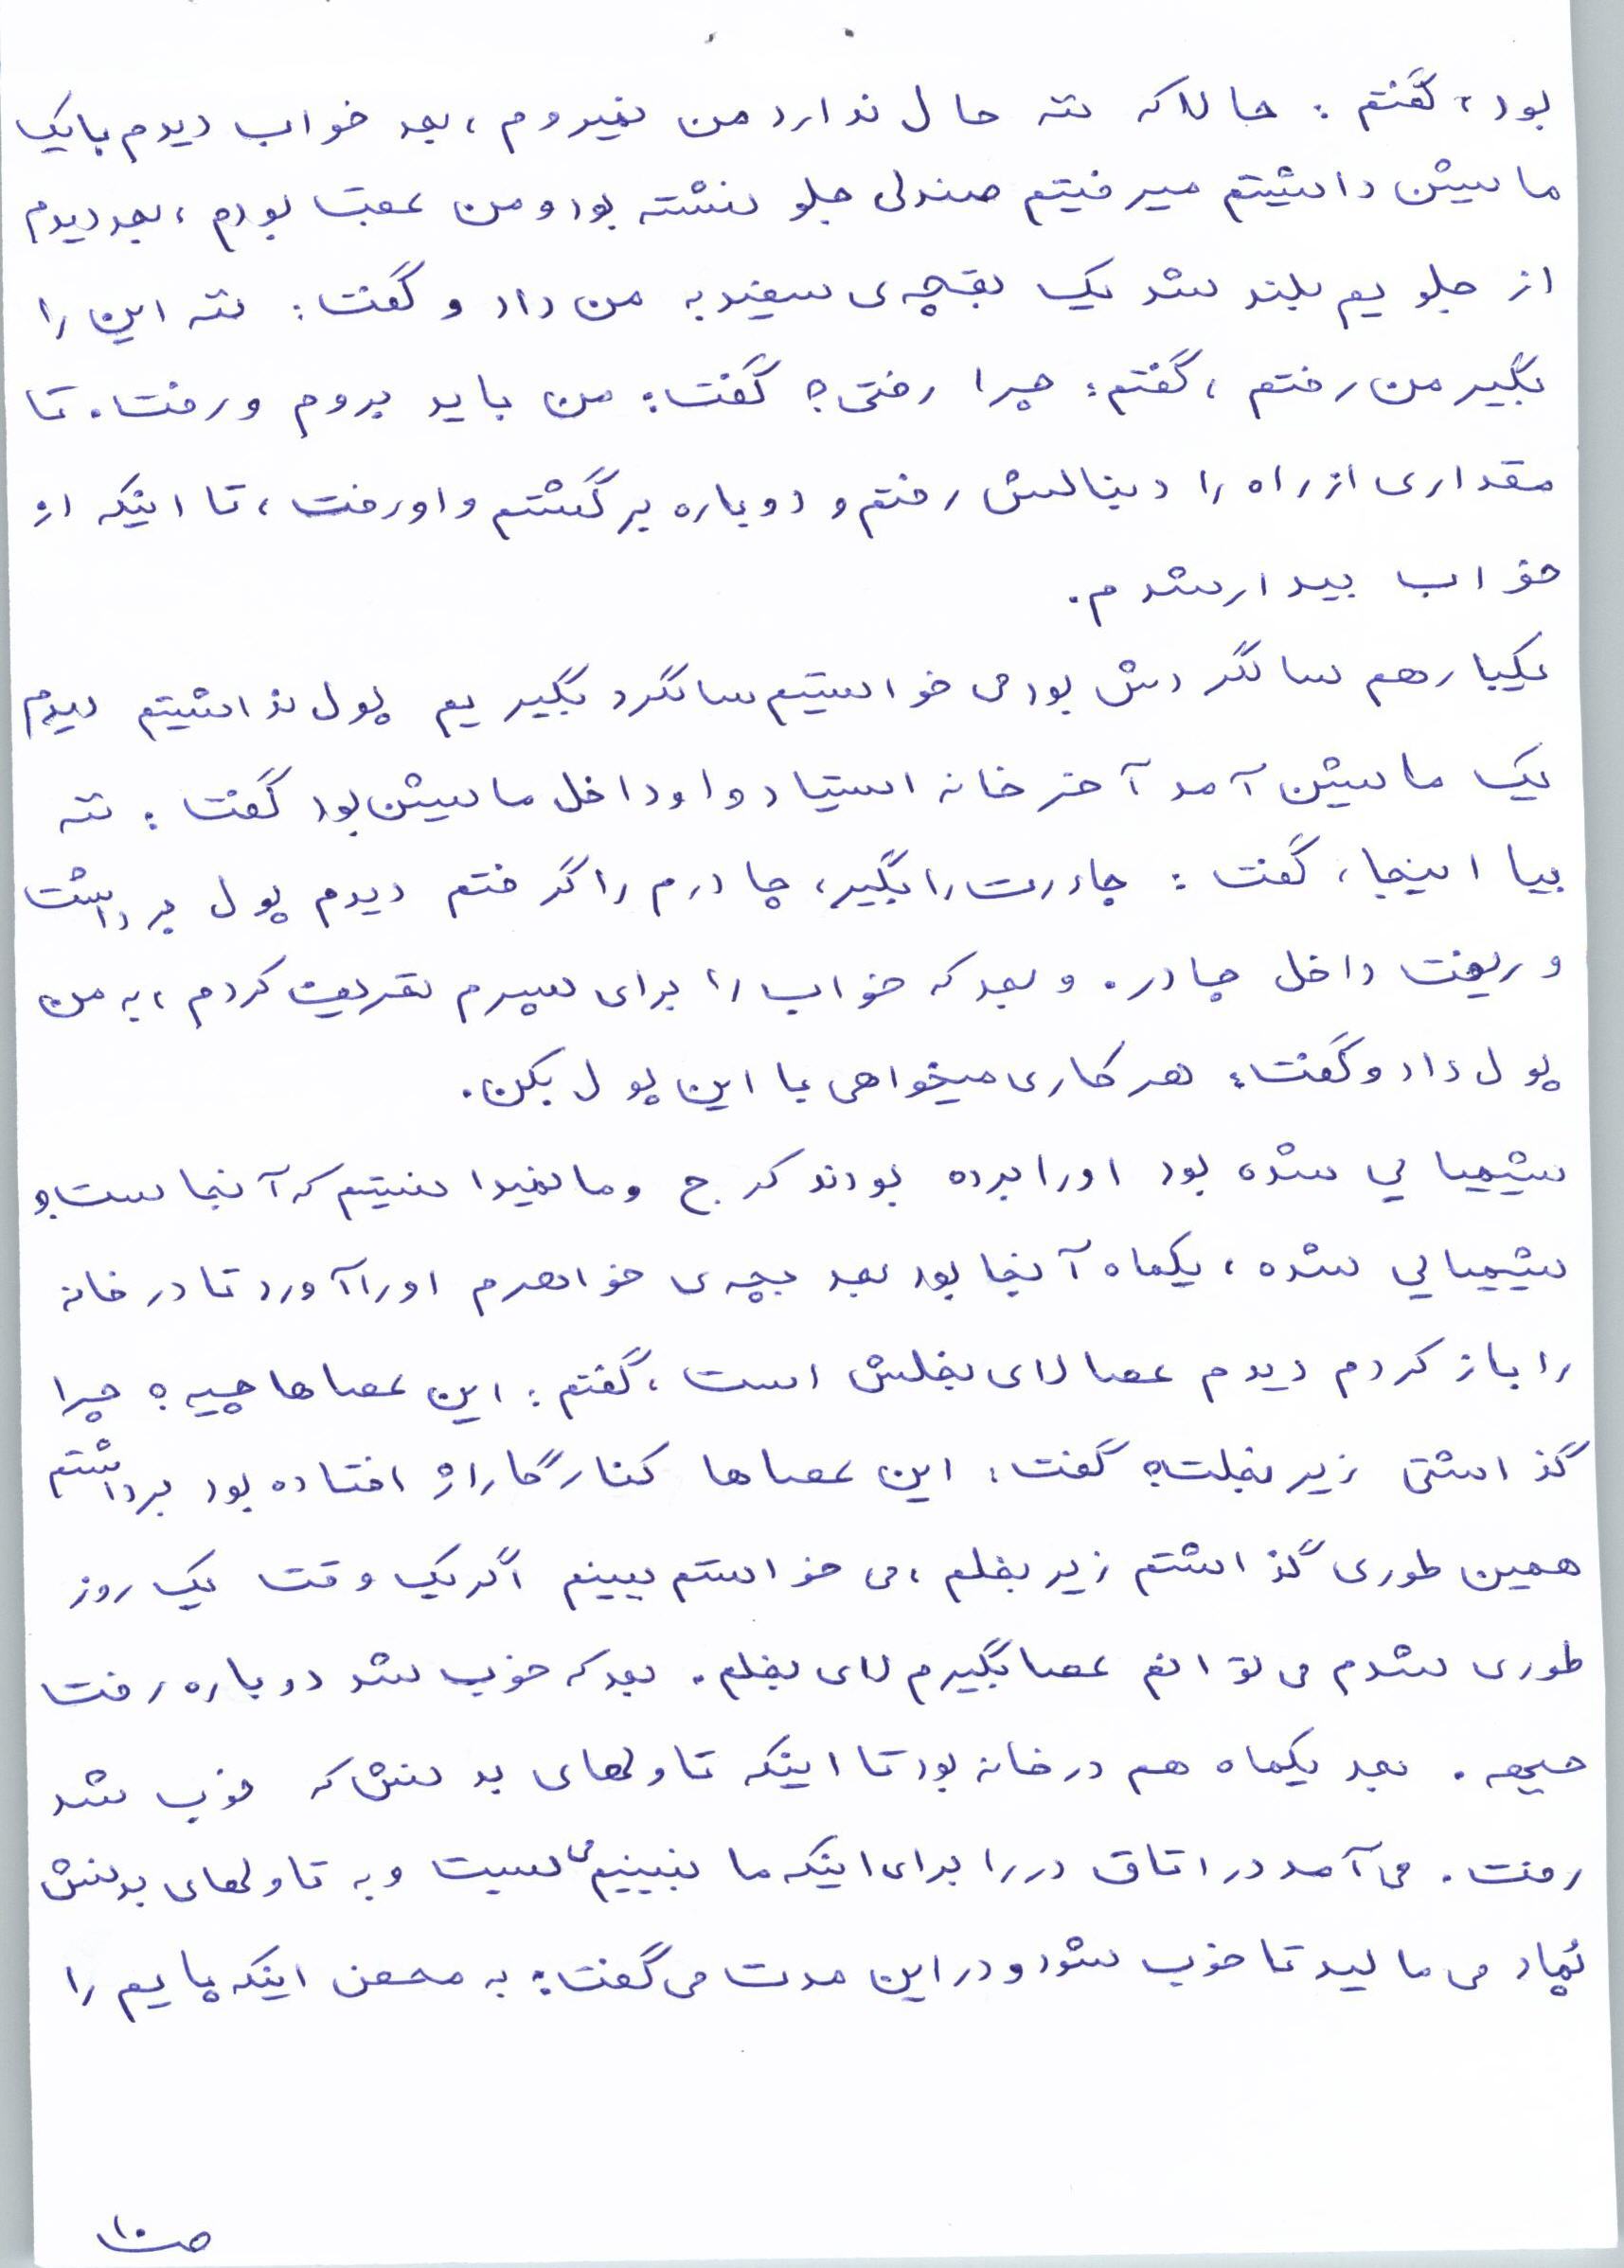 بود، گفتم: حالا که ننه حال ندارد من نمیروم، بعد خواب دیدم با یک
ماشین داشتیم میرفتیم صندلی جلو نشسته بود و من عقب بودم، بعد دیدم
از جلویم بلند شد یک بقچه‌ی سفید به من داد و گفت: ننه این را
بگیر من رفتم، گفتم: چرا رفتی؟ گفت: من باید بروم و رفت. تا
مقداری از راه را دنبالش رفتم و دوباره برگشتم و او رفت، تا اینکه از
خواب بیدار شدم.
یکبار هم سالگردش بود می خواستیم سالگرد بگیریم پول نداشتیم دیدم
یک ماشین آمد آخر خانه استیاد و او داخل ماشین بود گفت: ننه
بیا اینجا، گفت: چادرت را بگیر، چادرم را گرفتم دیدم پول برداشت
و ریخت داخل چادر. و بعد که خواب را برای پسرم تعریف کردم، به من
پول داد و گفت: هر کاری میخواهی با این پول بکن.
شیمیایی شده بود او را برده بودند کرج و ما نمیدانستیم که آنجاست و
شیمیایی شده، یکماه آنجا بود بعد بچه‌ی خواهرم او را آورد تا در خانه
را باز کردم دیدم عصا لای بغلش است، گفتم: این عصاها چیه؟ چرا
گذاشتی زیر بغلت؟ گفت: این عصاها کنار گاراژ افتاده بود برداشتم
همین طوری گذاشتم زیر بغلم، می خواستم ببینم اگر یک وقت یک روز
طوری شدم می توانم عصا بگیرم لای بغلم. بعد که خوب شد دوباره رفت
جبهه. بعد یکماه هم در خانه بود تا اینکه تاولهای بدنش که خوب شد
رفت. می آمد در اتاق در را برای اینکه ما نبینیم می بست و به تاولهای بدنش
پُماد می مالید تا خوب شود و در این مدت می گفت: به محض اینکه پایم را
ص۱۰